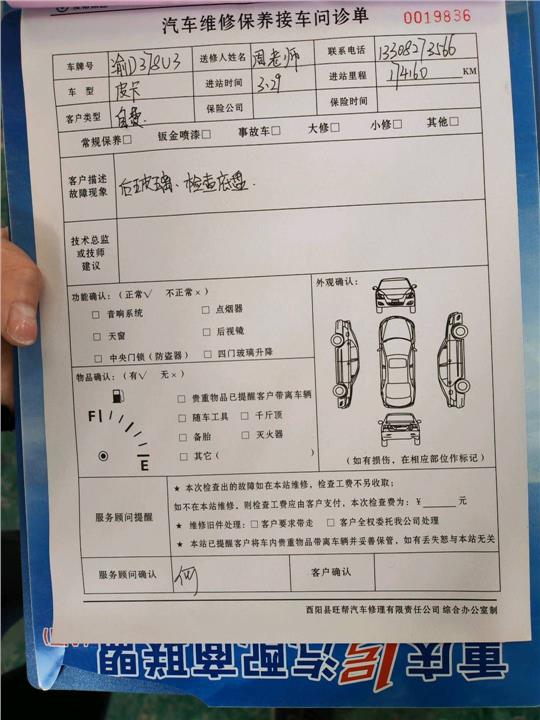 汽车维修保养接车问诊单 0019836
车牌号 渝D378U3 送修人姓名 周老师 联系电话 13308273566
车 型 皮卡 进站时间 3.29 进站里程 174160 KM
客户类型 自费. 保险公司 保险时间
常规保养□ 钣金喷漆□ 事故车□ 大修□ 小修□ 其他□
客户描述
故障现象
后玻璃、检查底盘.
技术总监
或技师
建议
功能确认：（正常√ 不正常×）
□ 音响系统 □ 点烟器
□ 天窗 □ 后视镜
□ 中央门锁（防盗器） □ 四门玻璃升降
外观确认：
物品确认：（有√ 无×）
F
E
□ 贵重物品已提醒客户带离车辆
□ 随车工具 □ 千斤顶
□ 备胎 □ 灭火器
□ 其它（ ）
（如有损伤，在相应部位作标记）
服务顾问提醒
★ 本次检查出的故障如在本站维修，检查工费不另收取；
如不在本站维修，则检查工费应由客户支付，本次检查费为：¥ 元
★ 维修旧件处理：□ 客户要求带走 □ 客户全权委托我公司处理
★ 本站已提醒客户将车内贵重物品带离车辆并妥善保管，如有丢失恕与本站无关
服务顾问确认 何 客户确认
酉阳县旺帮汽车修理有限责任公司 综合办公室制
重庆1号汽配商联盟